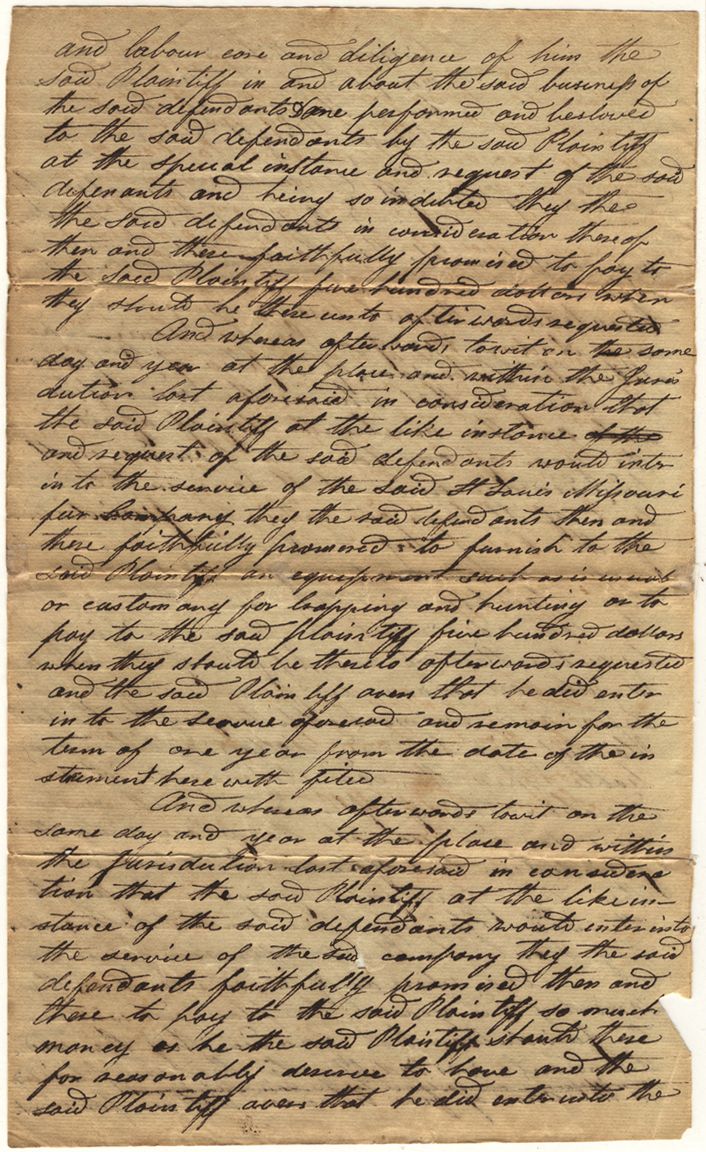 and labour care and diligence of him the
said Plaintiff in and about the said business of
the said defendants done performed and bestowed
to the said defendants by the said Plaintiff
at the special instance and request of the said
defenants and being so indebted they the
the said defendants in consideration thereof
then and there faithfully promised to pay to
the said Plaintiff five hundred dollars when
they should be there unto afterwards requested
And whereas afterwards towit on the same
day and year at the place and within the Juris
diction last aforesaid in consideration that
the said Plaintiff at the like instance of the
and request of the said defendants would inter
in to the service of the said St Louis Missouri
fur Company they the said defendants then and
there faithfully promised to furnish to the
said Plaintiff an equipment such as is usual
or customary for trapping and hunting or to
pay to the said plaintiff five hundred dollars
when they should be thereto afterwards requested
and the said Plaintiff avers that he did enter
in to the service aforesaid and remain for the
term of one year from the date of the in
strument here with filed
And whereas afterwords towit on the
same day and year at the place and within
the Jurisdiction last aforesaid in considera
tion that the said Plaintiff at the like in-
stance of the said defendants would inter into
the service of the said company they the said
defendants faithfully promised then and
there to pay to the said Plaintiff so much
money as he the said Plaintiff should there
for reasonably deserve to have and the
said Plaintiff avers that he did enter into the